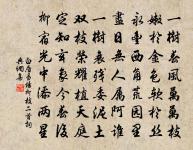 一樹春風萬萬枝
嫩於金色軟於絲
永豐西角荒園裏
盡日無人屬阿誰
一樹衰殘委泥土
雙枝榮耀植天庭
定知玄象今春後
柳宿光中添兩星
白居易楊柳枝二首詞